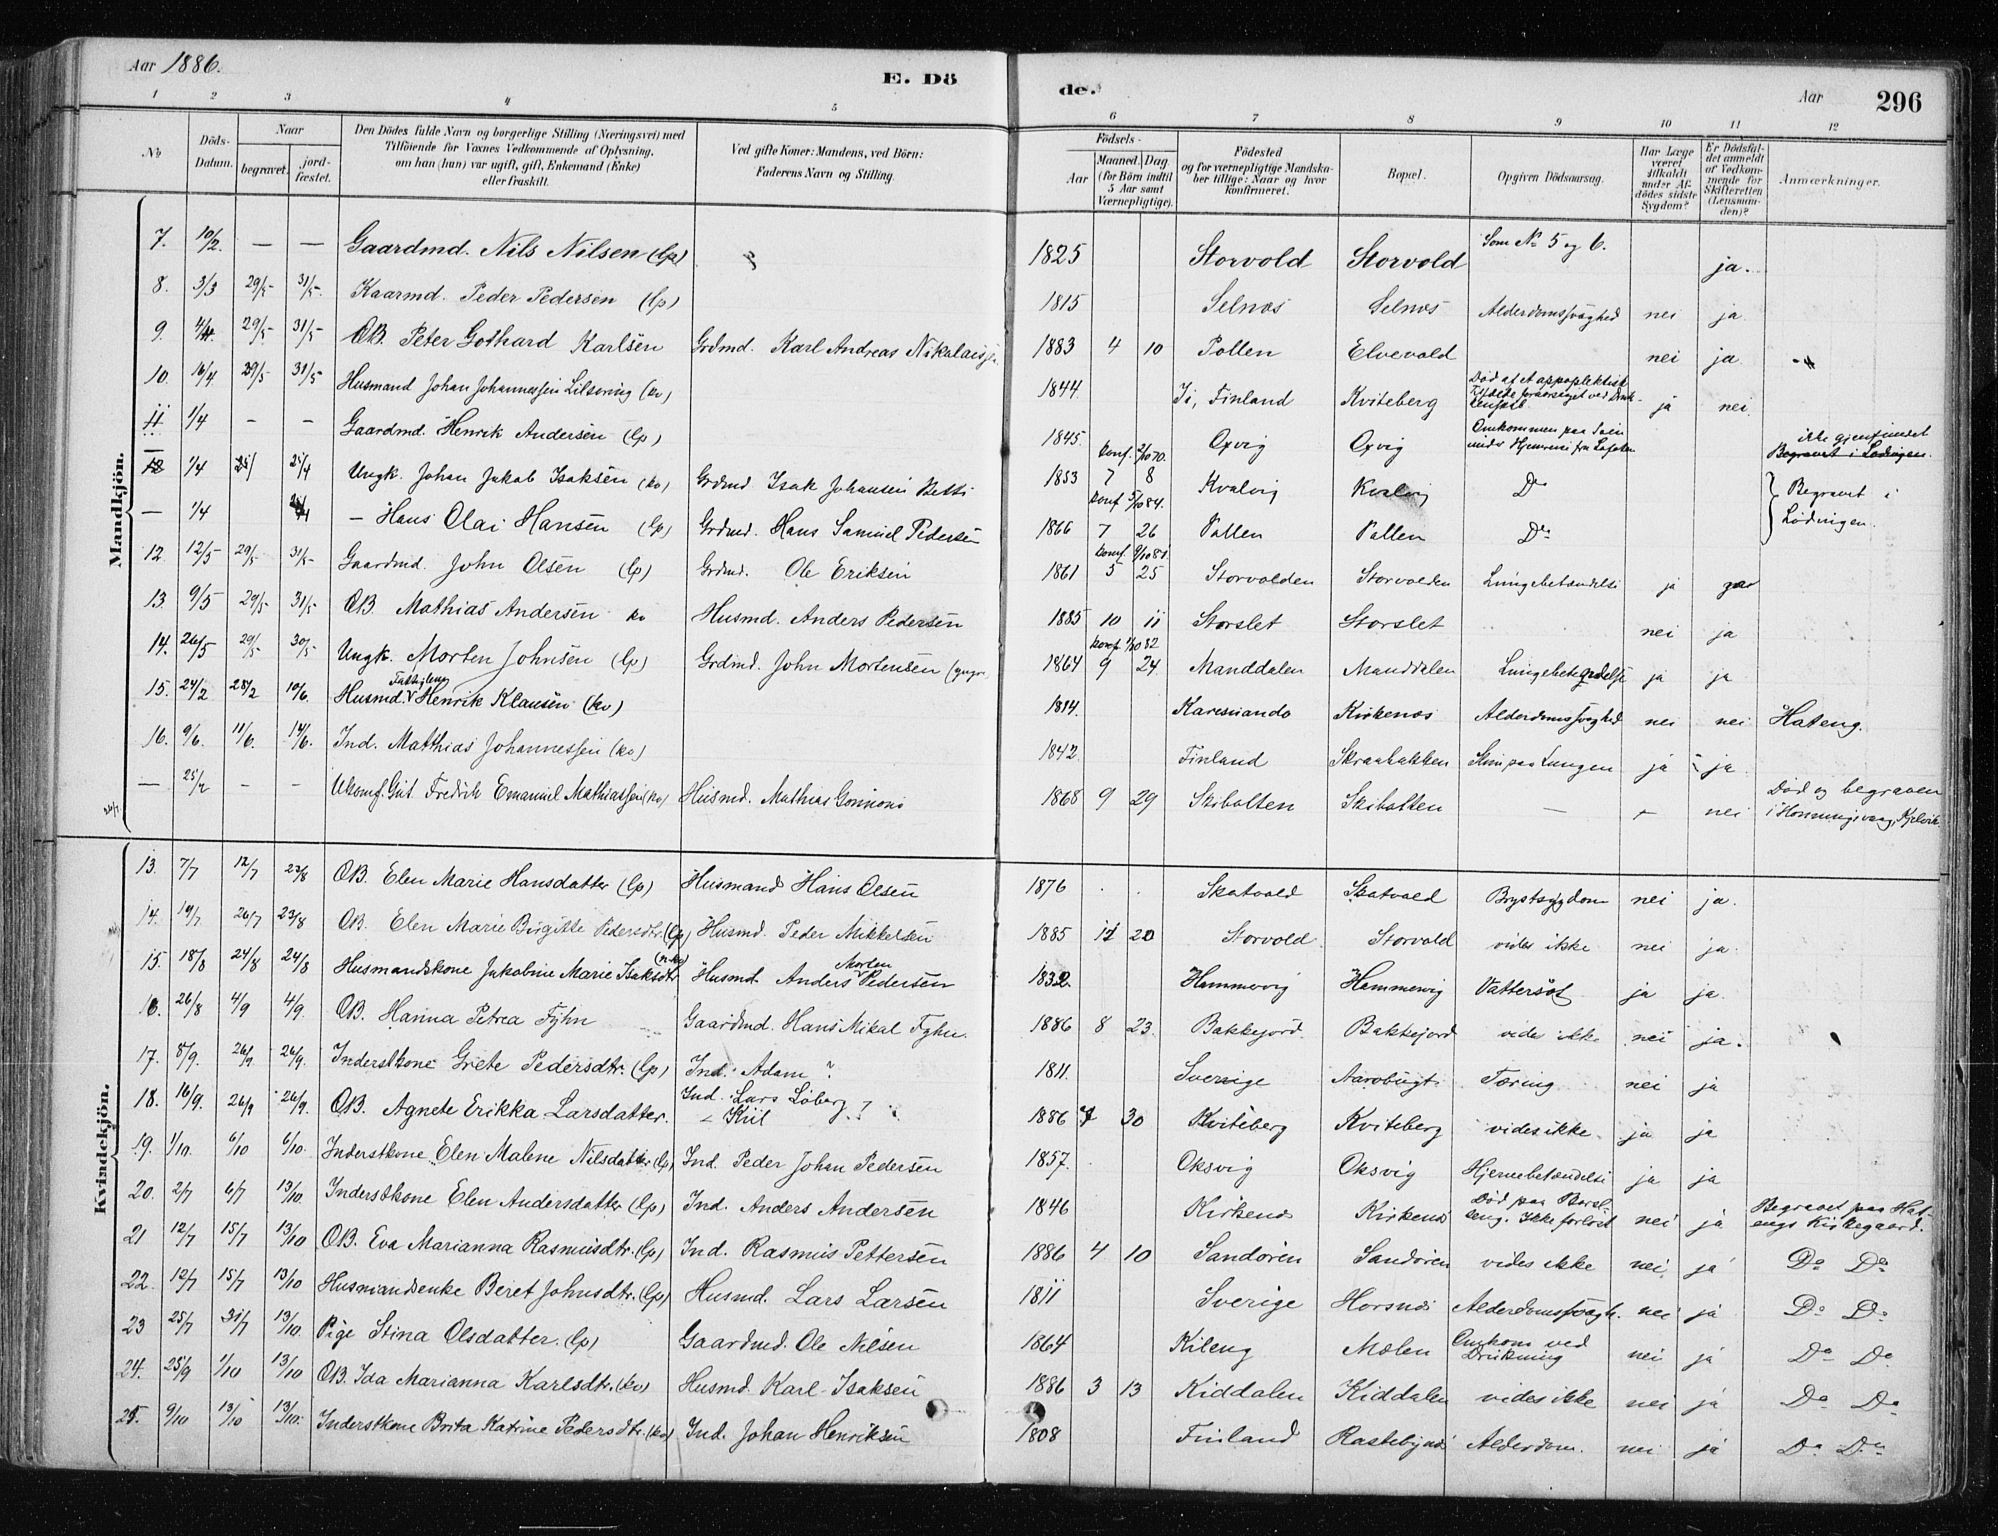 Aar 1886.
E. Dö
de.
Aar
296
1 2 3 4 5 6 7 8 9 10 11 12
No
Döds-Datum.
Naar
begravet.
jord-fæstet.
Den Dödes fulde Navn og borgerlige Stilling (Næringsvei) med
Tilföiende for Voxnes Vedkommende af Oplysning,
om han (hun) var ugift, gift, Enkemand (Enke)
eller fraskilt.
Ved gifte Koner: Mandens, ved Börn:
Faderens Navn og Stilling.
Födsels-
Aar
Maaned. Dag.
(for Börn indtil
5 Aar samt
Værnepligtige).
Födested
og for værnepligtige Mandska-
ber tillige: Naar og hvor
konfirmeret.
Bopæl.
Opgiven Dödsaarsag.
Har Læge
været
tilkaldt
under Af-
dödes sidste
Sygdom?
Er Dödsfal-
det anmeldt
af Vedkom-
mende for
Skifteretten
(Lensman-
den)?
Anmærkninger.
Mandkjön.
7. 10/2. — — Gaardmd. Nils Nilsen (lp) 1825 Storvold Storvold Som No 5 og 6. ja.
8. 3/3 29/5 31/5 Kaarmd. Peder Pedersen (lp) 1815 Selnæs Selnæs Alderdomssvaghed nei ja.
9. 4/4 29/5 31/5 OB. Peter Gothard Karlsen Grdmd. Karl Andreas Nikolais 1883 4 10 Pollen Elvevold nei ja.
10. 16/4 29/5 31/5 Husmand Johan Johannessen (kv) 1844. Finland Kviteberg Död af et appoplektisk Tilfælde foraarsaget ved ja nei
11 1/4 - - Gaardmd. Henrik Andersen (lp) 1845. Oxvig Oxvig Omkommen paa Söen under Hjemreise fra Lofoten ikke gjenfundet Begravet i Lödingen.
12 1/4 25/ 25/4 Ungk. Johan Jakob Isaksen (kv) Grdmd Isak Johansen Konf. 2/10 70. 1853 7 8 Kvalvig Kvalvig Do Begravet i Lödingen.
— 1/4 — Hans Olai Hansen (lp) Grdmd. Hans Samuel Pedersen konf 5/10 84. 1866 7 26 Pollen Pollen Do
12 12/5 29/5 31/5 Gaardmd. John Olsen (lp) Grdmd. Ole Eriksen konf. 1861 5 25 Storvolden Storvolden Lungebetændelse ja
13. 9/5 29/5 31/5 OB. Mathias Andersen kv Husmd. Anders Pedersen 1885 10 11 Storslet Storslet nei ja
14. 26/5 29/5 30/5 Ungk. Morten Johnsen (lp) Grdmd. John Mortensen konf 1/10 82 1864 9 24 Manddalen Manddalen Lungebetændelse ja ja
15. 24/2 28/2 10/6. Husmd. Fattiglem Henrik Klausen (kv) 1814. Karesuando Kirkenæs Alderdomssvaghed nei nei Hateng.
16. 9/6. 11/6. 14/6. Ind. Matthias Johannessen (kv) 1842. Finland Skraabakken Sting paa Lungen ja ja.
— 25/2 - - Ukonf. Gut. Fredrik Emanuel Mathiassen (kv) Husmd. Mathias 1868 9 29 Skibotten Skibotten — — nei Död og begraven i Honningsvaag, Kjelvik
Kvindekjön.
13. 7/7 12/7 23/8 OB. Elen Marie Hansdatter (lp) Husmand Hans Olsen 1876 . . Skatvold Skatvold Brystsygdom nei ja.
14. 19/7 26/7 23/8 OB. Elen Marie Birgitte Pedersdtr. (lp) Husmd. Peder Mikkelsen 1885 11 20 Storvold. Storvold vides ikke nei ja.
15. 18/8 24/8 24/8 Husmandskone Jakobine Marie Isaksdtr (n-kv) Husmd. Anders Morten Pedersen 1832. Hammervig Hammervig Vattersot ja ja.
16. 26/8 4/9 4/9. OB. Hanna Petrea Fyhn Gaardmd. Hans Mikal Fyhn. 1886 8 23. Bakkejord. Bakkejord vides ikke nei ja.
17. 8/9. 26/9 26/9. Inderstkone Grete Pedersdtr. (lp) Ind. Adam ? 1811. Sverige Aarobugt Tæring nei ja
18. 16/9. 26/9 26/9. OB. Agnete Erikka Larsdatter. Ind. Lars Löberg - Kiil ? 1886 7 30 Kviteberg Kviteberg vides ikke. ja ja
19. 1/10. 6/10 6/10. Inderstkone Elen Malene Nilsdatter (lp) Ind. Peder Johan Pedersen 1857. Oksvig Oksvig Hjernebetændelse ja ja
20. 2/7 6/7 13/10. Inderstkone Elen Andersdatter (lp) Ind. Anders Andersen 1846 Kirkenæs Kirkenæs Död paa Barsel-seng. Ikke forlöst nei ja Begravet paa Hat-engs Kirkegaard.
21 12/7 15/7 13/10 OB. Eva Marianna Rasmusdtr. (lp) Ind. Rasmus Pettersen 1886 4 10 Sandören Sandören vides ikke nei. ja Do Do
22. 12/7 15/7 13/10 Husmandsenke Beret Johnsdtr. (lp) Husmd. Lars Larsen 1811 Sverige Horsnæs Alderdomssvagh. nei ja Do Do
23 25/7 31/7 13/10. Pige Stina Olsdatter. (lp) Gaardmd. Ole Nilsen 1864 Kileng Molen Omkom ved Drukning nei ja Do Do
24. 25/9 1/10 13/10 OB. Ida Marianna Karlsdtr. (kv) Husmd. Karl Isaksen 1886 3 13 Kiddalen Kiddalen vides ikke nei ja Do Do
25. 9/10 13/10 13/10. Inderstkone Brita Katrine Pedersdtr. (kv) Ind. Johan Henriksen 1808 Finland Rastebynæs Alderdom. nei ja Do Do